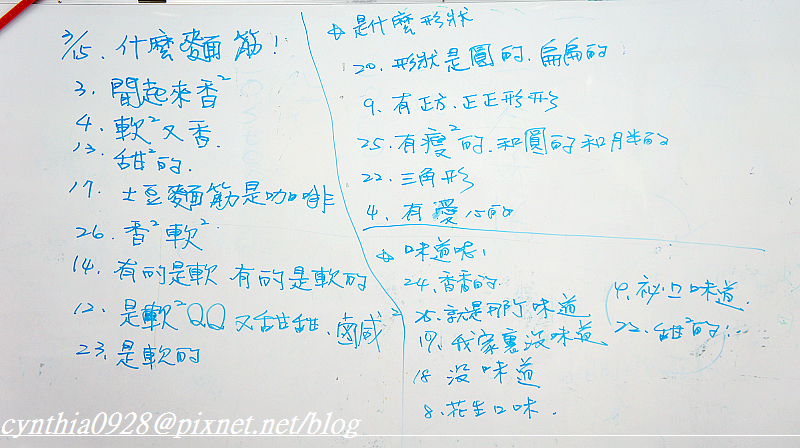 3/15. 什麼麵筋!
3. 聞起來香²
4. 軟²又香.
13. 甜²的.
17. 土豆麵筋是咖啡
26. 香²軟²
14. 有的是軟 有的是軟的
12. 是軟²QQ又甜甜、鹵咸²
23. 是軟的
是什麼形狀
20. 形狀是圓的、扁扁的
9. 有正方、正正形形
25. 有瘦²的、和圓的和胖的
22. 三角形
4. 有愛心的
味道呢!
24. 香香的.
25. 就是那個味道
19. 我家裏沒味道、
18 沒味道
8. 花生口味.
味道.
22. 甜²的!
cynthia0928@pixnet.net/blog